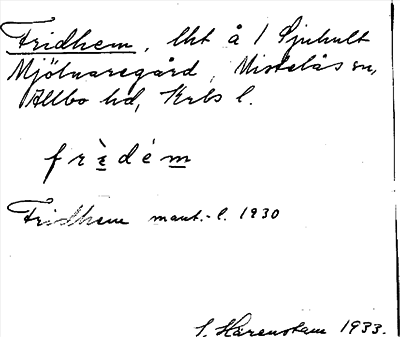 Fridhem, lht å 1 Sjuhult
Mjölnaregård, Mistelås sn,
Allbo hd, Krbs l.
frèdém
Fridhem mant.-l. 1930
S. Härenstam 1933.